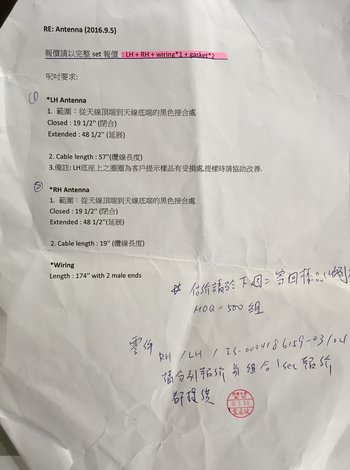 RE: Antenna (2016.9.5)
報價請以完整 set 報價 : LH + RH + wiring*1 + gasket*2
呎吋要求:
(1) *LH Antenna
1. 範圍：從天線頂端到天線底端的黑色接合處
Closed : 19 1/2" (閉合)
Extended : 48 1/2" (延展)
2. Cable length : 57"(纜線長度)
3.備註: LH底座上之圈圈為客戶提示樣品有受損處,提樣時請協助改善.
*RH Antenna
1. 範圍：從天線頂端到天線底端的黑色接合處
Closed : 19 1/2" (閉合)
Extended : 48 1/2"(延展)
2. Cable length : 19" (纜線長度)
*Wiring
Length : 174" with 2 male ends
* 估價請於下週二寄回樣品
MOQ = 500 組
零件 RH / LH / 75-0024186159-03/04
請分別報價 每組合 1 set 報價